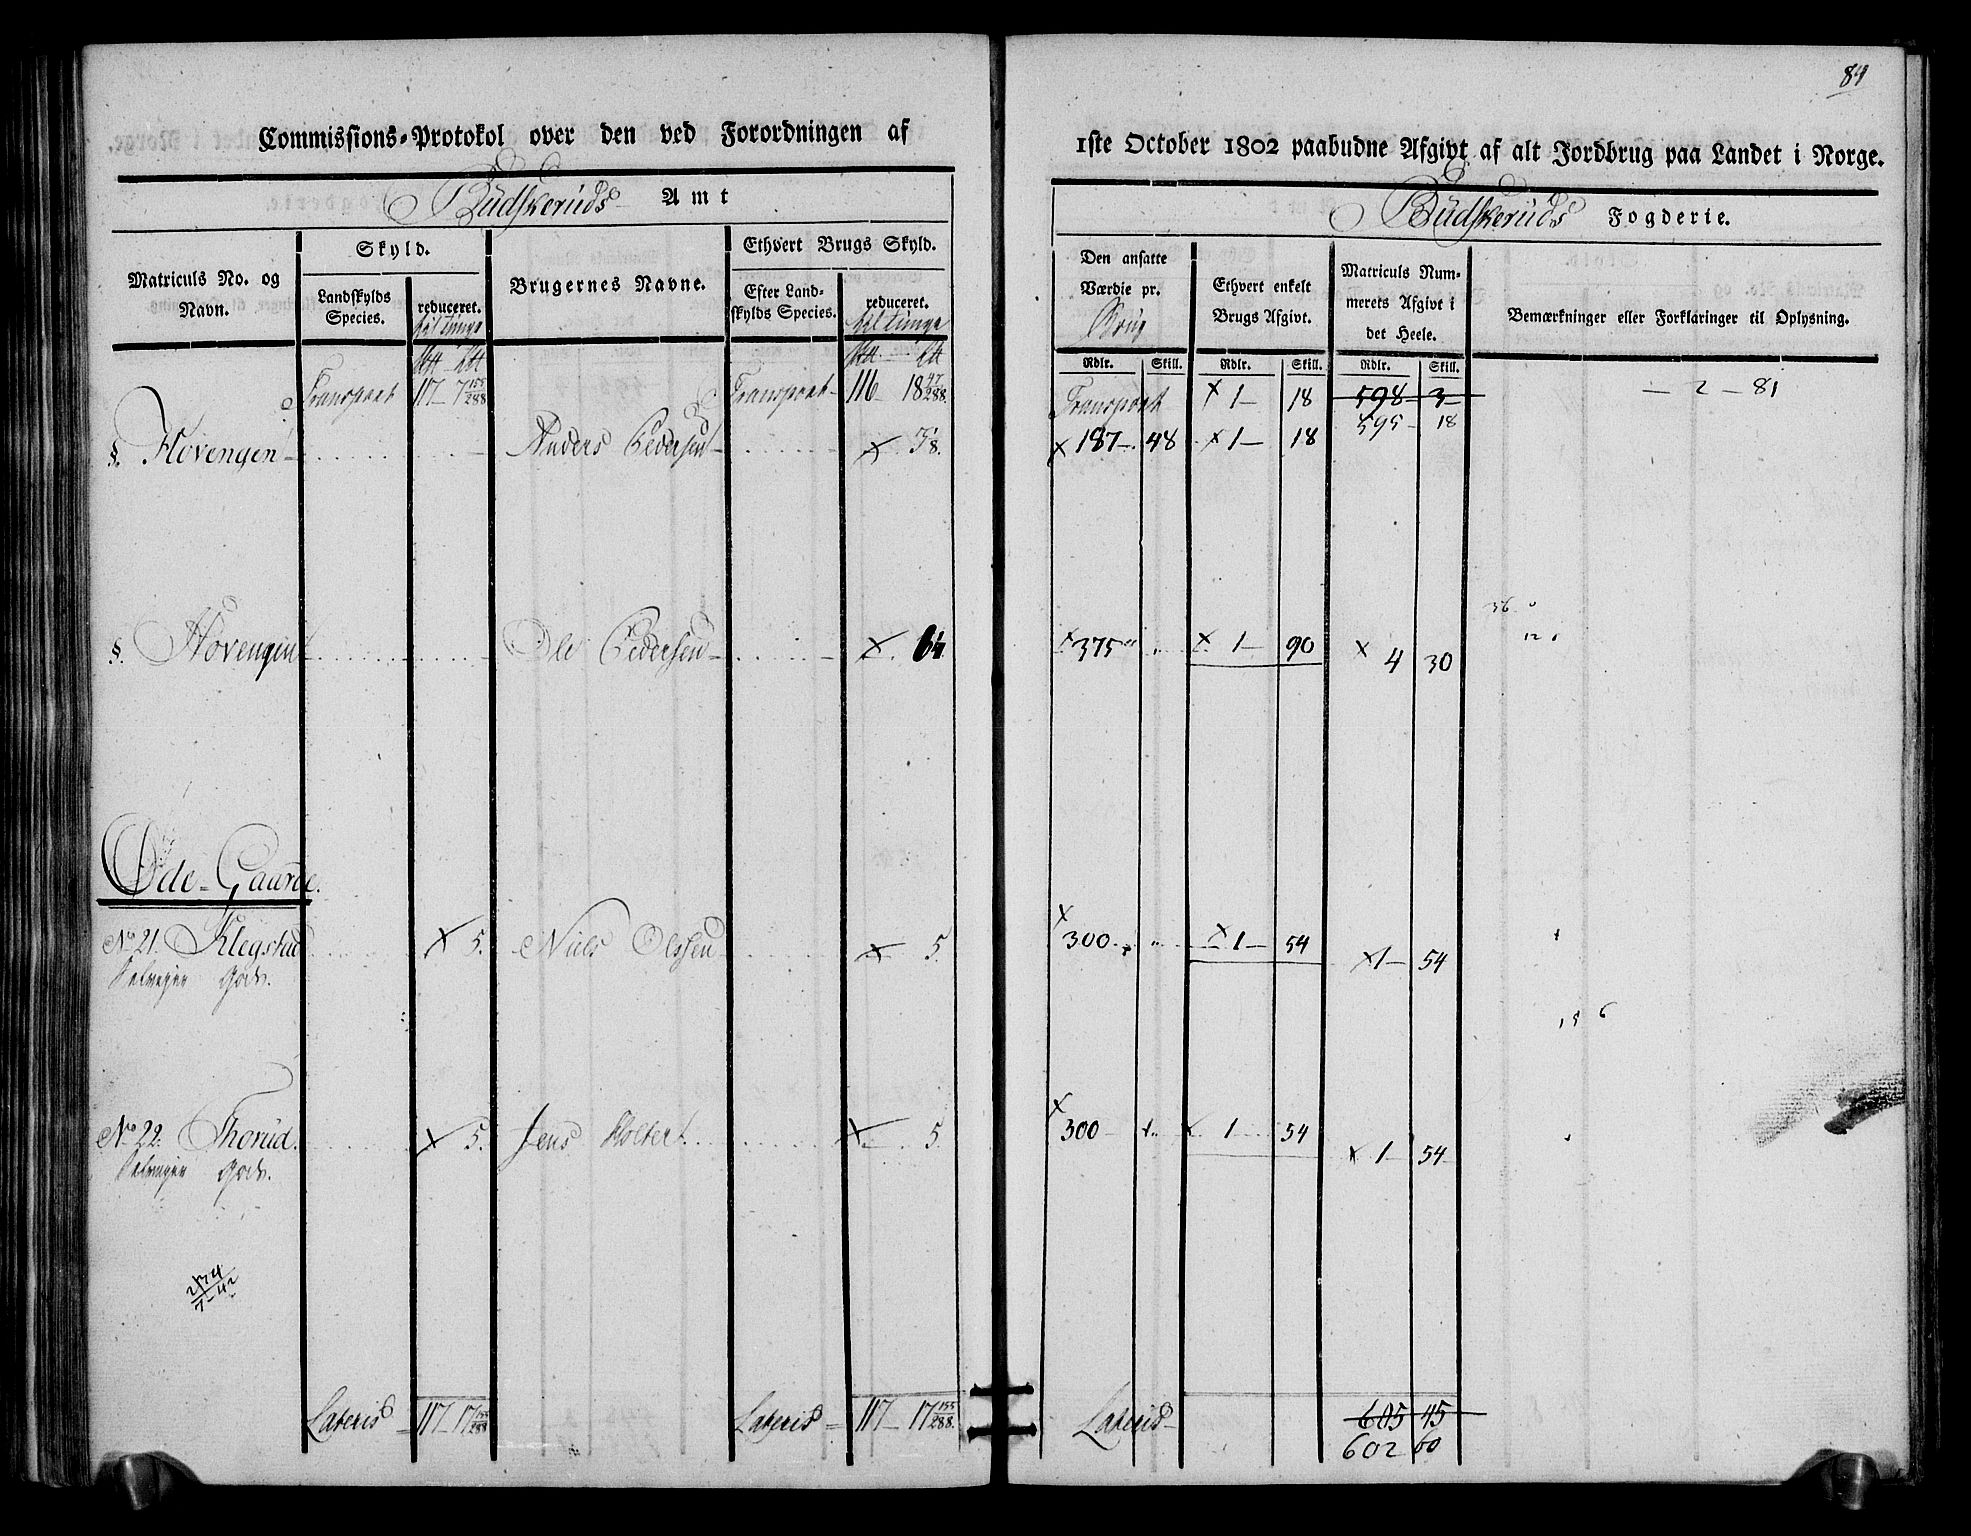 84
Commissions-Protokol over den ved Forordningen af 1ste October 1802 paabudne Afgivt af alt Jordbrug paa Landet i Norge.
Budskeruds Amt
Budskeruds Fogderie.
Matriculs No. og Navn.
Skyld.
Landskylds Species.
reduceret.
Brugernes Navne.
Ethvert Brugs Skyld.
Efter Landskylds Species.
reduceret.
Den ansatte Værdie pr. Brug
Ethvert enkelt Brugs Afgivt.
Matriculs Nummerets Afgivt i det Heele.
Bemærkninger eller Forklaringer til Oplysning.
Rdlr. Skill. Rdlr. Skill. Rdlr. Skill.
Transport 117 - 7 155/288 Transport - 116 - 18 47/288 Transport x 1 - 18 598 3 - 2 - 81
595 - 18
§. Hovengen Anders Pedersen x 5/8. x 187 - 48 x 1 - 18
36
12
§. Hovengen Ole Pedersen x 6 1/4 x 375 " x 1 - 90 x 4 30
Øde-Gaarde.
No 21. Klegstad x 5. Niels Olssen x 5. x 300 " x 1 - 54 x 1 - 54
Gods.
15 6
No 22. Thorud x 5. Jens Holtert x 5. x 300 x 1 54 x 1 - 54
Gods.
Lateris 117 - 17 155/288 Lateris 117 - 17 155/288. Lateris 605 45
602 60